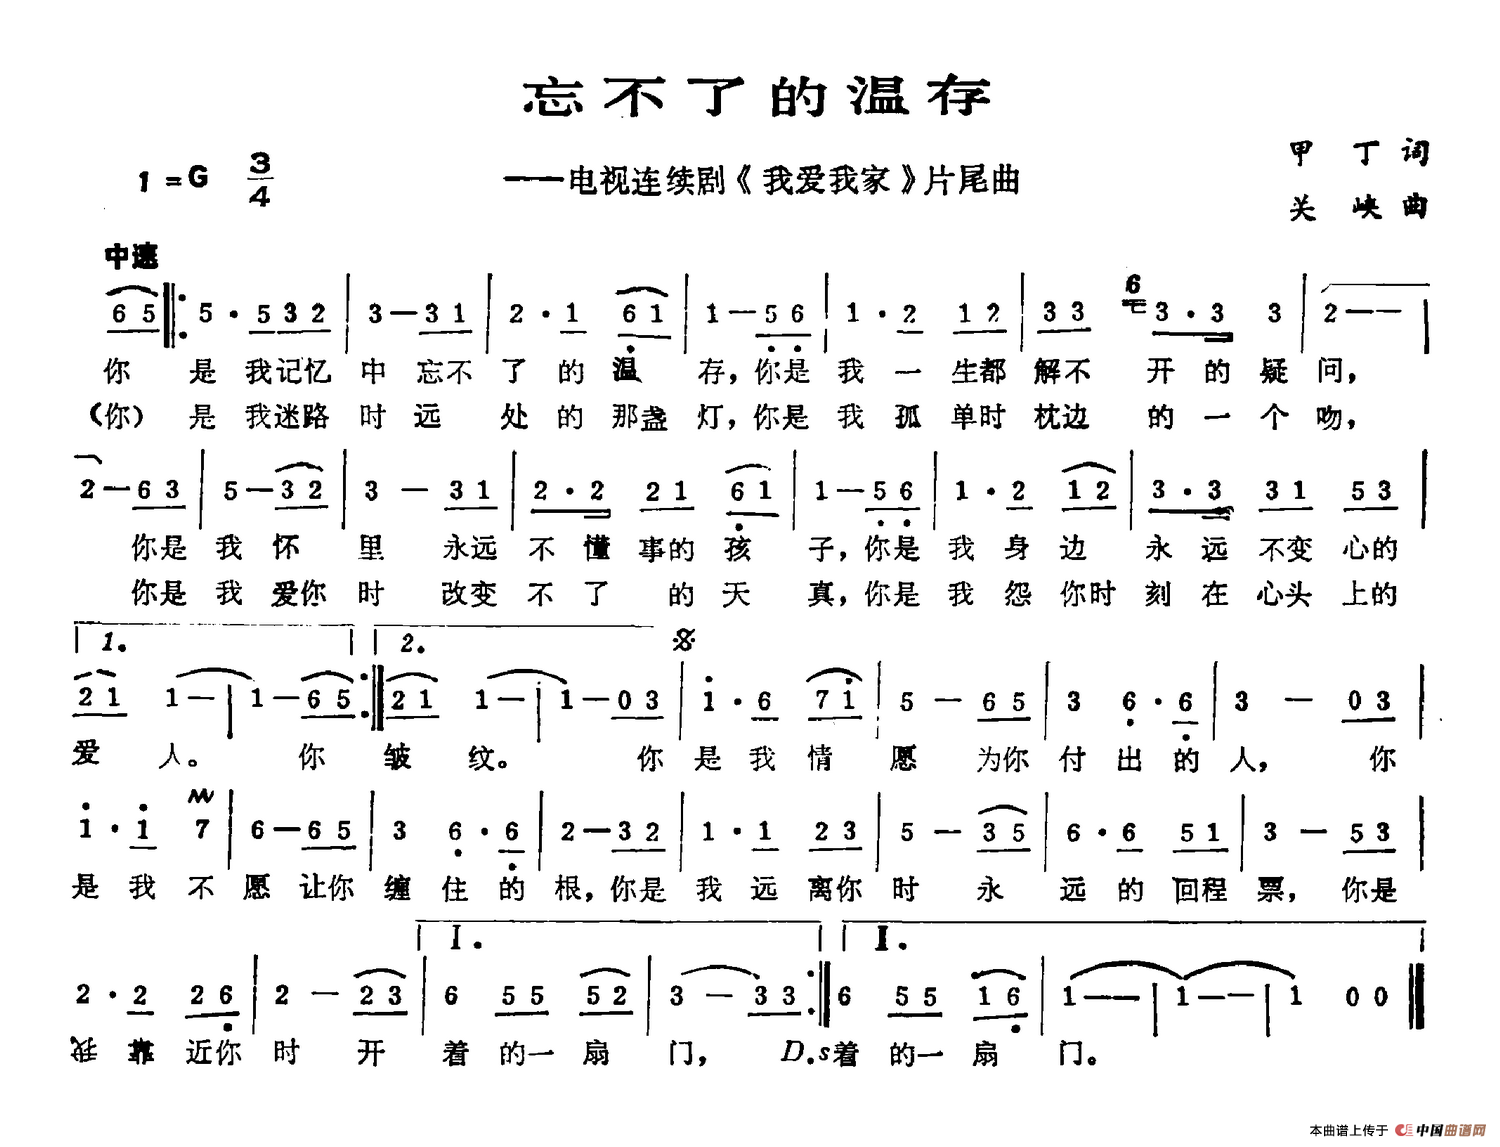 忘不了的温存
1=G 3/4
——电视连续剧《我爱我家》片尾曲
甲 丁 词
关 峡 曲
中速
6 5 ‖: 5 · 5 3 2 | 3 — 3 1 | 2 · 1 6 1 | 1 — 5 6 | 1 · 2 1 2 | 3 3 6 3 · 3 3 | 2 — — |
你 是 我记忆 中 忘不 了 的 温 存，你是 我 一 生都 解不 开 的 疑 问，
（你） 是 我迷路 时 远 处 的 那盏 灯，你是 我 孤 单时 枕边 的 一 个 吻，
2 — 6 3 | 5 — 3 2 | 3 — 3 1 | 2 · 2 2 1 6 1 | 1 — 5 6 | 1 · 2 1 2 | 3 · 3 3 1 5 3 |
你是 我 怀 里 永远 不 懂 事的 孩 子，你是 我 身 边 永 远 不变 心的
你是 我 爱你 时 改变 不 了 的 天 真，你是 我 怨 你时 刻 在 心头 上的
1. 2.
2 1 1 — | 1 — 6 5 :‖ 2 1 1 — | 1 — 0 3 | 1 · 6 7 1 | 5 — 6 5 | 3 6 · 6 | 3 — 0 3 |
爱 人。 你 皱 纹。 你 是 我 情 愿 为你 付 出 的 人， 你
1 · 1 7 | 6 — 6 5 | 3 6 · 6 | 2 — 3 2 | 1 · 1 2 3 | 5 — 3 5 | 6 · 6 5 1 | 3 — 5 3 |
是 我 不 愿 让你 缠 住 的 根，你是 我 远 离你 时 永 远 的 回程 票， 你是
I. II.
2 · 2 2 6 | 2 — 2 3 | 6 5 5 5 2 | 3 — 3 3 :‖ 6 5 5 1 6 | 1 — — | 1 — — | 1 0 0 ‖
我 靠 近你 时 开 着 的一 扇 门， D.s 着 的一 扇 门。
本曲谱上传于 中国曲谱网